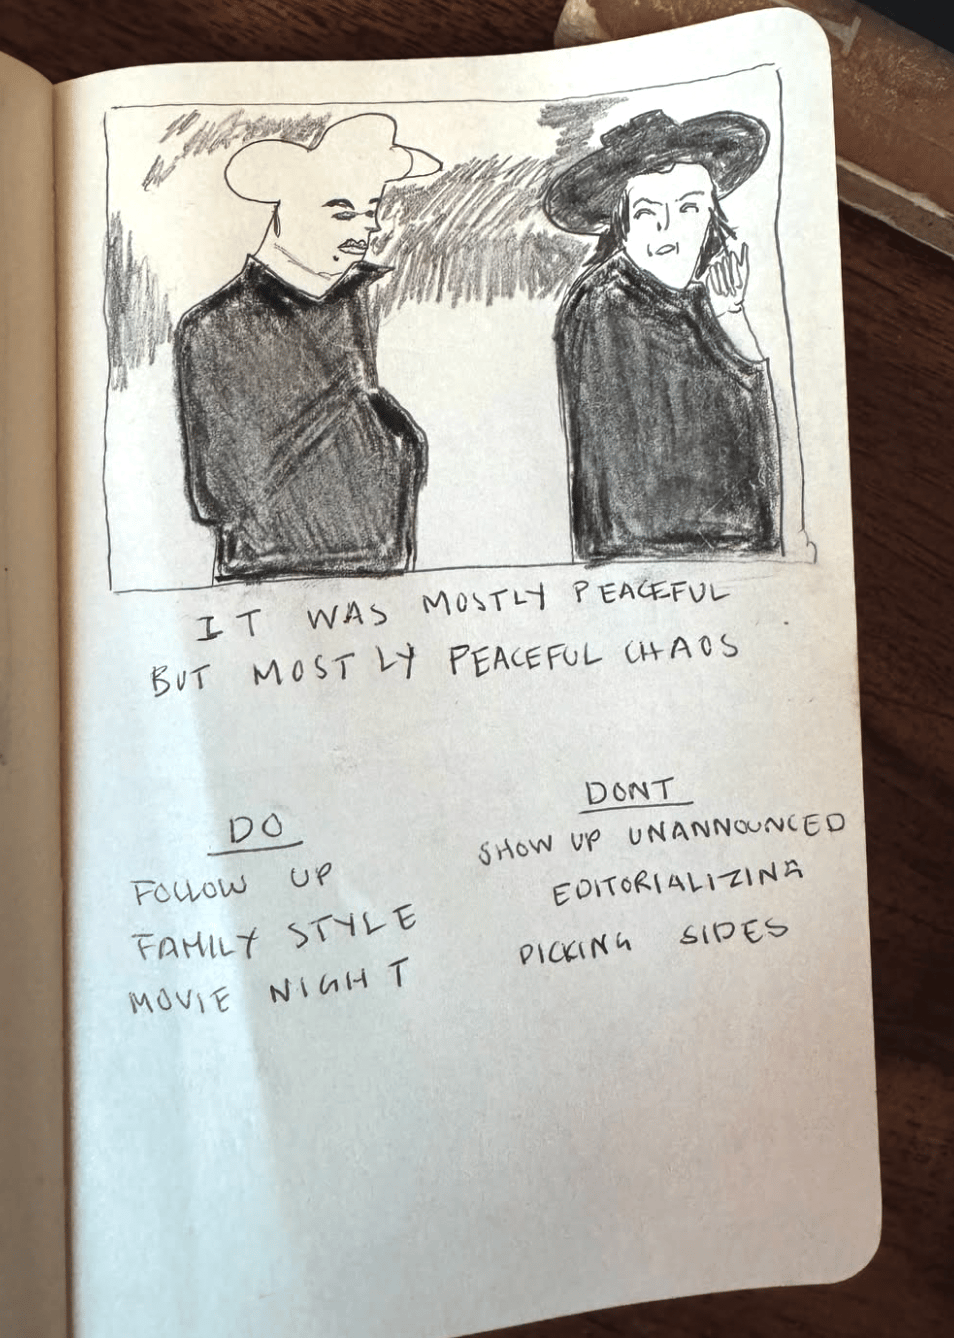 IT WAS MOSTLY PEACEFUL
BUT MOSTLY PEACEFUL CHAOS
DO
FOLLOW UP
FAMILY STYLE
MOVIE NIGHT
DONT
SHOW UP UNANNOUNCED
EDITORIALIZING
PICKING SIDES